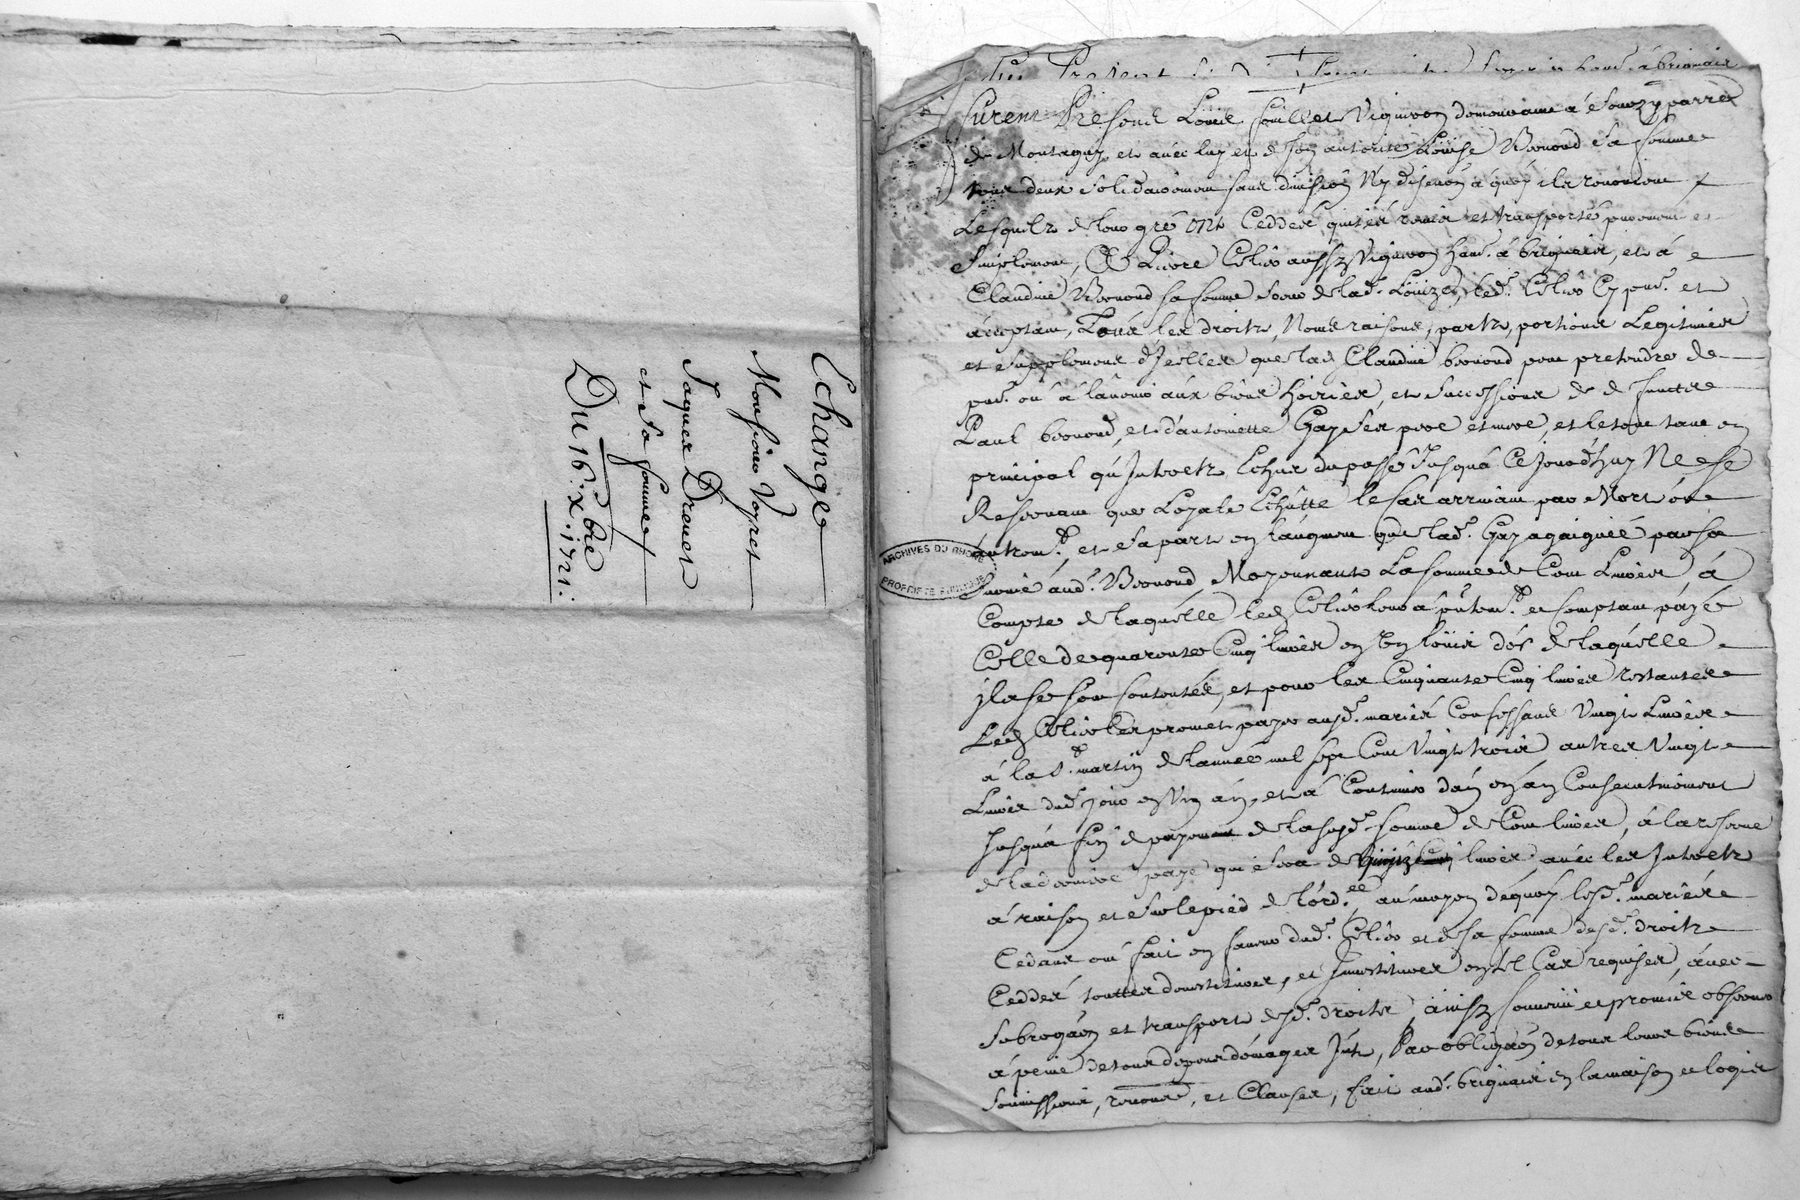 Echange
Monsieur Voyret
Jaques Drevet
et sa femme
Du 16: Xbre
1721:
ARCHIVES DU RHONE
PROPRIETE PUBLIQUE
furent Présens Loüis vigneron demeurant à parre
de Montagny et avec luy et de son autorité Loüise Bonond sa femme
tous deux solidairement sans division ny discution à quoy ils renoncent
Lesquels de leur gré ont Ceddés, quittés remis et transportés purement et
simplement, à Pierre aussy Vigneron hant. à brignais, et à
Claudine Bonond sa femme soeur de lad. Loüize, led. Cy pnt. et
acceptant, Tous les droits, Noms raisons, parts, portions Legitimes
et supplemens d'Icelles que lad. Claudine bonond peut pretendre de
pnt. ou à l'avenir aux biens hoiries, et successions de deffuncts
Paul bonond, et d'antoinette Gay ses pere et mere, et le tout tant en
principal qu'Interets Echus du passé Jusqu'à Cejourd'huy Ne se
Reservant que Loyale Echûtte le cas arrivant par Mort ou
autremt. et sa part en l'augment que lad. Gay a gaignée par sa
survie aud. Bonond Moyennant La somme de Cent Livres, à
Compte de laquelle led. a pntemt. et Comptant payé
Celle de quarente Cinq livres en Un loüis d'or de laquelle
ils se sont contentés, et pour les Cinquante Cinq livres restantes
Led. les promet payer ausd. mariés Confessans Vingt Livres
à la St. martin de l'année mil sept Cent Vingt trois autres Vingt
Livres dud. jour en Un an, et à Continuer d'an en an Consecutivement
Jusqu'à fin de payement de la susd. somme de Cent livres, à la reserve
de la derniere paye qui sera de livres avec les Interets
à raison et sur le pied de l'ord.ce au moyen de quoy lesd. mariés
Cedans ont fait en faveur dud. et de sa femme desd. droits
Ceddés touttes devestitures, et Investitures en tel Cas requises, avec
subrogaon et transport desd. droits, ainsy Convenu et promis observer
à peine de tous depens domages Ints, Par obligaon de tous leurs biens
soumissions, renons, et Clauses, fait aud. brignais en la maison et logis